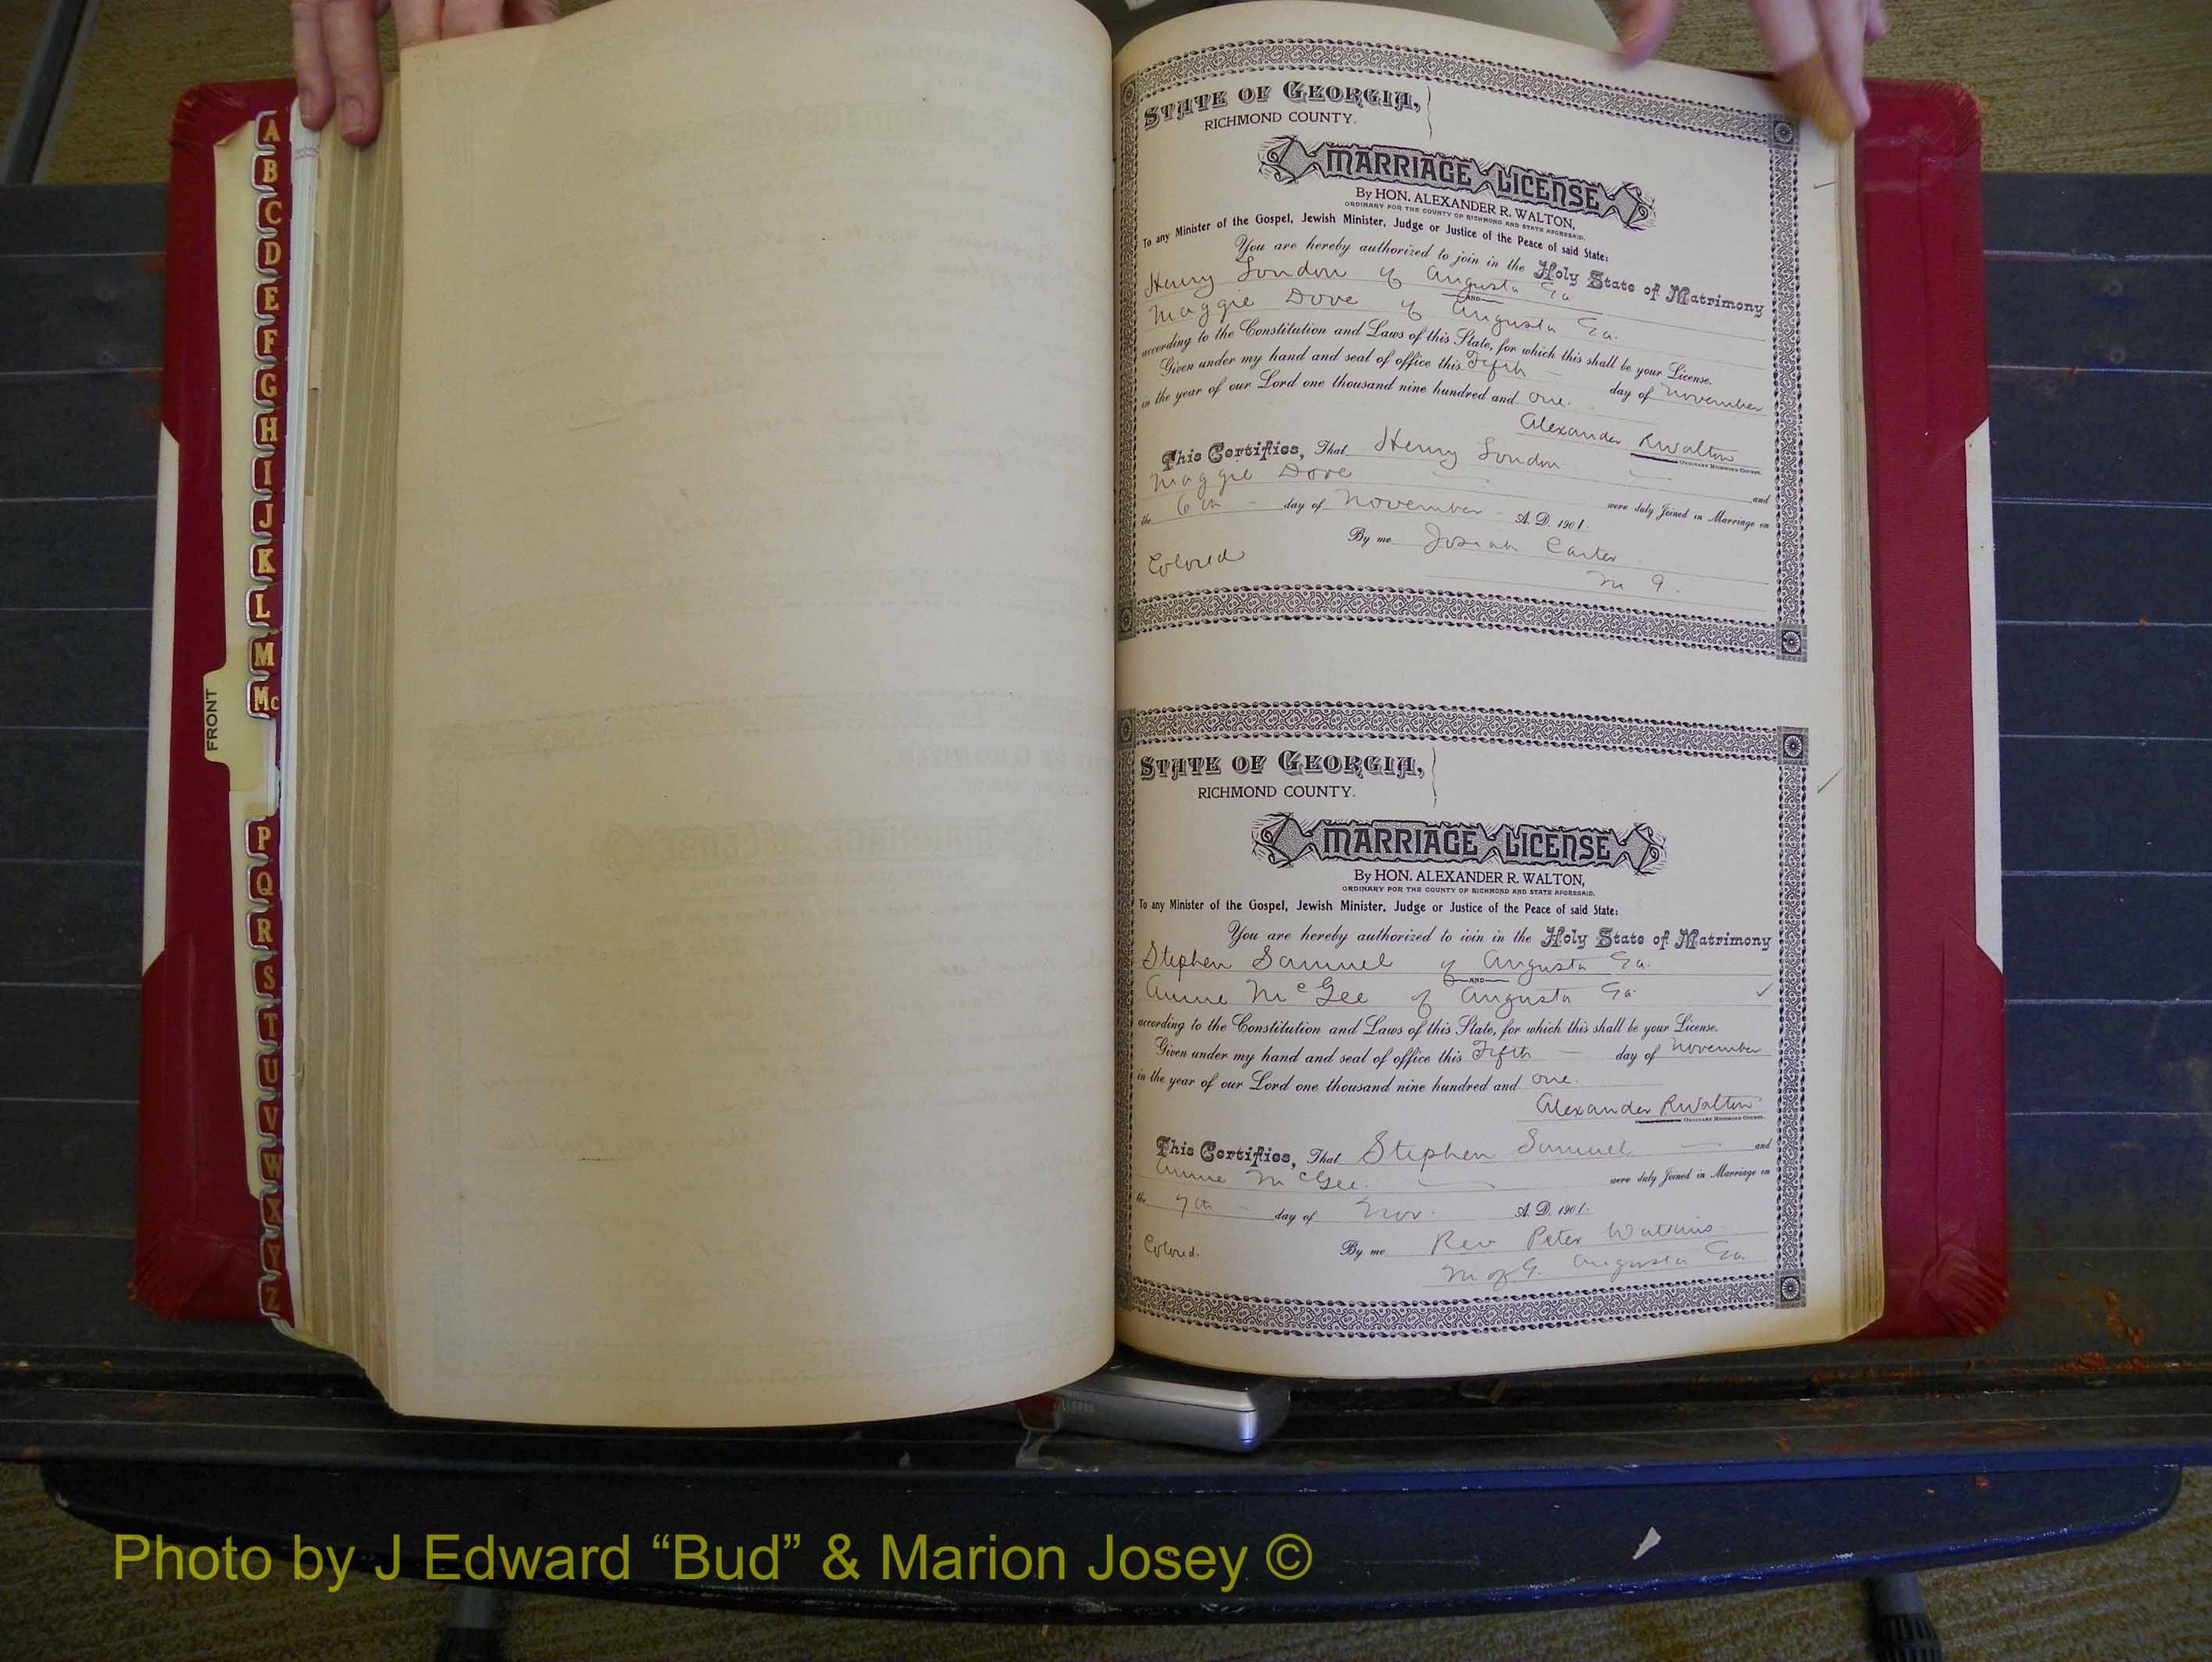 A
B
C
D
E
F
G
H
I
J
K
L
M
Mc
P
Q
R
S
T
U
V
W
X
Y
Z
FRONT
STATE OF GEORGIA,
RICHMOND COUNTY.
MARRIAGE LICENSE
By HON. ALEXANDER R. WALTON,
ORDINARY FOR THE COUNTY OF RICHMOND AND STATE AFORESAID.
To any Minister of the Gospel, Jewish Minister, Judge or Justice of the Peace of said State:
You are hereby authorized to join in the Holy State of Matrimony
Henry London of Augusta Ga
AND
Maggie Dove of Augusta Ga.
according to the Constitution and Laws of this State, for which this shall be your License.
Given under my hand and seal of office this Fifth day of November
in the year of our Lord one thousand nine hundred and one.
Alexander R Walton
ORDINARY RICHMOND COUNTY.
This Certifies, That Henry London and
Maggie Dove were duly Joined in Marriage on
the 6th day of November A. D. 1901.
By me Josiah Carter
Colored
M G.
STATE OF GEORGIA,
RICHMOND COUNTY.
MARRIAGE LICENSE
By HON. ALEXANDER R. WALTON,
ORDINARY FOR THE COUNTY OF RICHMOND AND STATE AFORESAID.
To any Minister of the Gospel, Jewish Minister, Judge or Justice of the Peace of said State:
You are hereby authorized to join in the Holy State of Matrimony
Stephen Samuel of Augusta Ga.
AND
Annie McGee of Augusta Ga.
according to the Constitution and Laws of this State, for which this shall be your License.
Given under my hand and seal of office this Fifth day of November
in the year of our Lord one thousand nine hundred and one.
Alexander R Walton
ORDINARY RICHMOND COUNTY.
This Certifies, That Stephen Samuel and
Annie McGee. were duly Joined in Marriage on
the 7th day of Nov. A. D. 1901.
Colored. By me Rev Peter Watkins
M of G. Augusta Ga.
Photo by J Edward “Bud” & Marion Josey ©